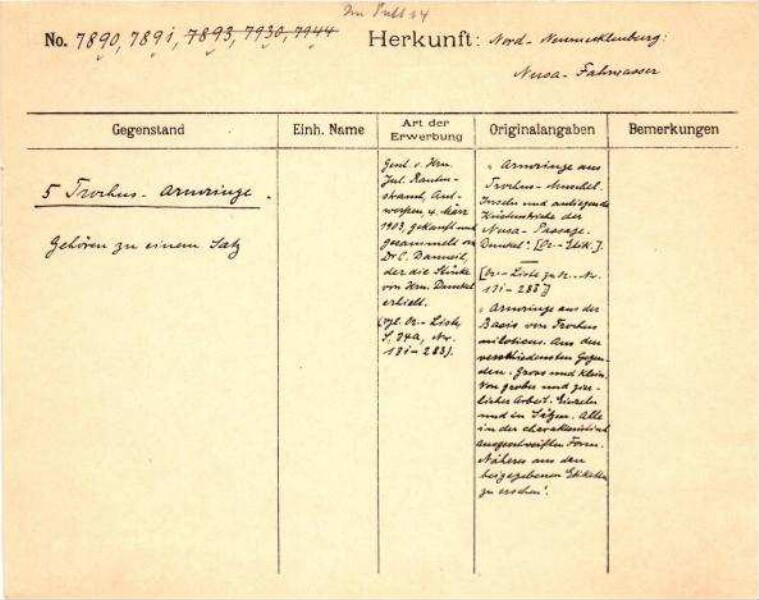 Im Pult 14
No. 7890, 7891, 7893, 7930, 7944
Herkunft: Nord-Neumecklenburg:
Nusa-Fahrwasser
Gegenstand
Einh. Name
Art der
Erwerbung
Originalangaben
Bemerkungen
5 Trochus-Armringe.
Gehören zu einem Satz
Gesch. v. Hrn.
Jul. Rauten-
strauch, Ant-
werpen, 4. März
1903, gekauft und
gesammelt von
Dr. C. Danneil,
der die Stücke
von Hrn. Dunckel
erhielt.
(vgl. Or.-Liste,
S. 24a, Nr.
181-283).
"Armringe aus
Trochus-Muschel.
Inseln und anliegende
Küstenstriche der
Nusa-Passage.
Dunckel". [Or.-Etik.].
[Or.-Liste zu Nr.
181-283]
"Armringe aus der
Basis von Trochus
niloticus. Aus den
verschiedensten Gegen-
den. Gross und klein.
Von grober und zier-
licher Arbeit. Einzeln
und in Sätzen. Alle
in der charakteristisch
ausgeschweiften Form.
Näheres aus den
beigegebenen Etiketten
zu ersehen".